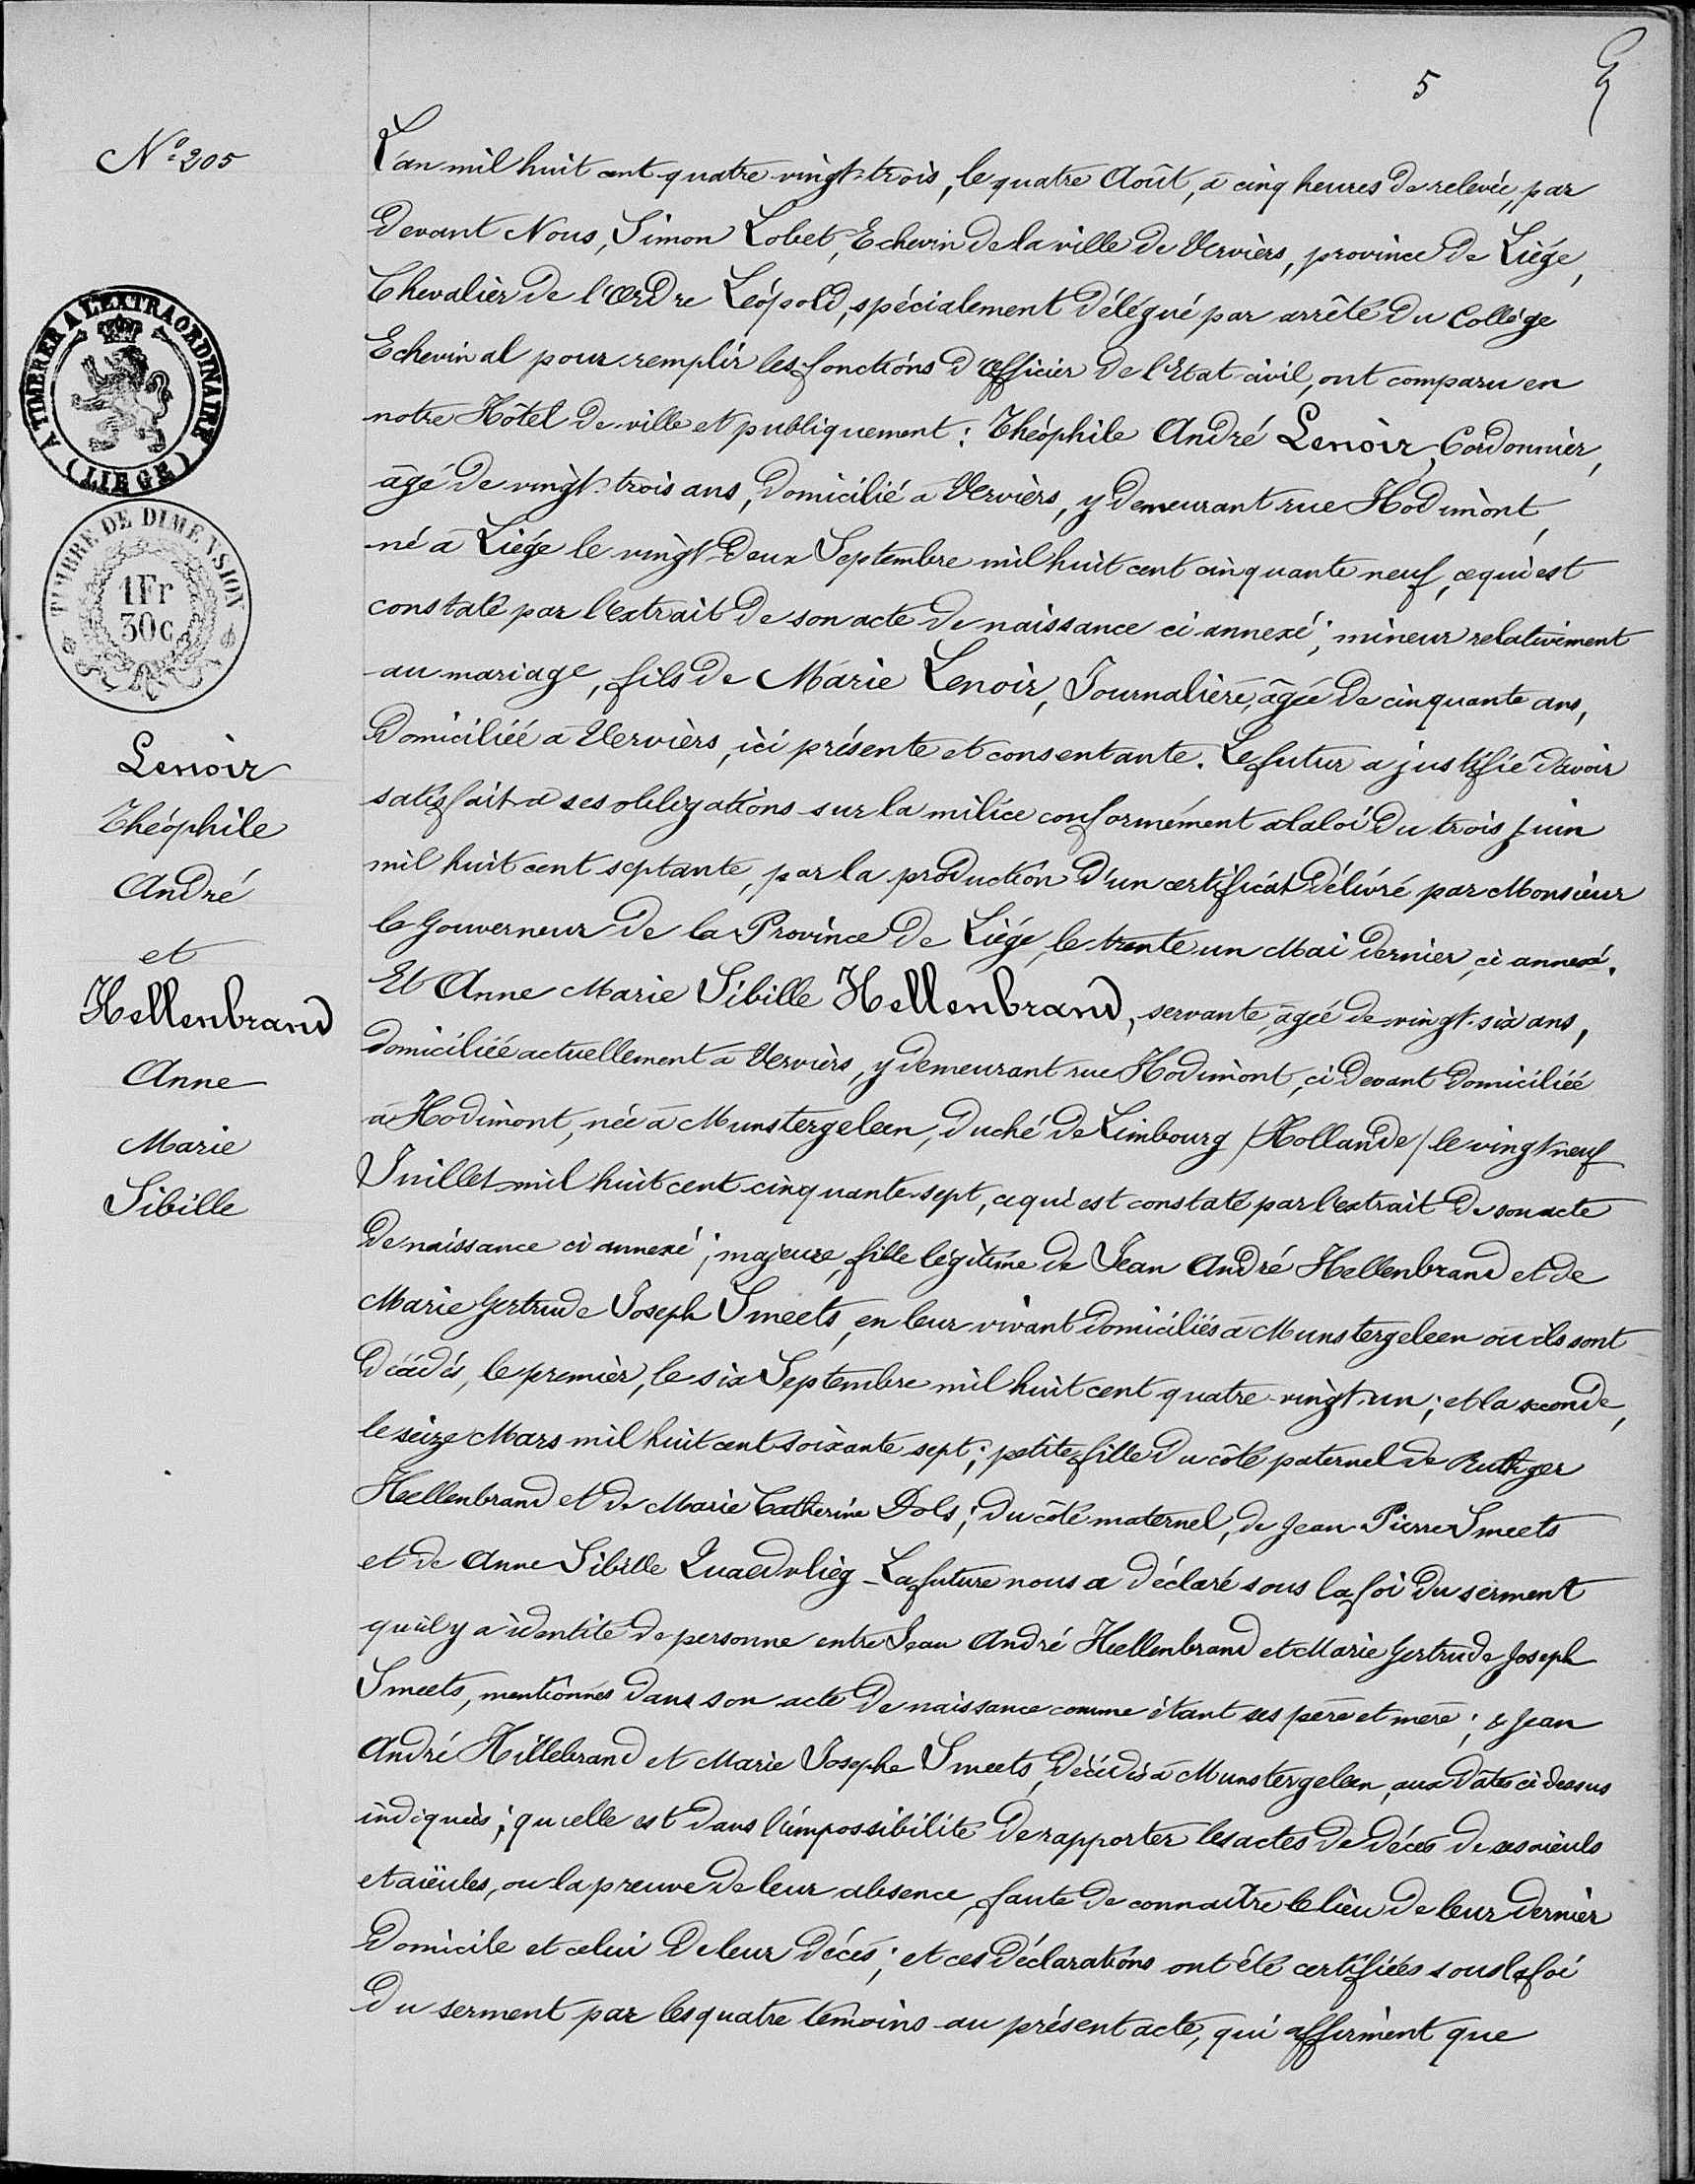 5
Nº 205
A TIMBRER A L'EXTRAORDINAIRE
(LIEGE)
TIMBRE DE DIMENSION
1Fr
30c
Lenoir
Théophile
André
et
Hellenbrand
Anne
Marie
Sibille
L'an mil huit cent quatre vingt-trois, le quatre Août, à cinq heures de relevée, par
devant Nous, Simon Lobet, Echevin de la ville de Verviers, province de Liége,
Chevalier de l'Ordre Léopold, spécialement délégué par arrêté du Collége
Echevinal pour remplir les fonctions d'Officier de l'Etat civil, ont comparu en
notre Hôtel de ville et publiquement: Théophile André Lenoir, Cordonnier,
âgé de vingt-trois ans, domicilié à Verviers, y demeurant rue Hodimont,
né à Liége le vingt-deux Septembre mil huit cent cinquante neuf, ce qui est
constaté par l'extrait de son acte de naissance ci annexé; mineur relativement
au mariage, fils de Marie Lenoir, Journalière, âgée de cinquante ans,
domiciliée à Verviers, ici présente et consentante. Le futur a justifié d'avoir
satisfait à ses obligations sur la milice conformément à la loi du trois Juin
mil huit cent septante, par la production d'un certificat délivré par Monsieur
le Gouverneur de la Province de Liége, le trente un Mai dernier, ci annexé.
Et Anne Marie Sibille Hellenbrand, servante, âgée de vingt-six ans,
domiciliée actuellement à Verviers, y demeurant rue Hodimont, ci devant domiciliée
à Hodimont, née à Munstergeleen, duché de Limbourg /Hollande/ le vingt neuf
Juillet mil huit cent cinquante-sept, ce qui est constaté par l'extrait de son acte
de naissance ci annexé; majeure, fille légitime de Jean André Hellenbrand et de
Marie Gertrude Joseph Smeets, en leur vivant domiciliés à Munstergeleen où ils sont
décédés, le premier, le six Septembre mil huit cent quatre-vingt-un; et la seconde,
le seize Mars mil huit cent soixante sept; petite fille du côté paternel de Ruthger
Hellenbrand et de Marie Catherine Dols; du côté maternel, de Jean Pierre Smeets
et de Anne Sibille Quaedvlieg - La future nous a déclaré sous la foi du serment
qu'il y a identité de personne entre Jean André Hellenbrand et Marie Gertrude Joseph
Smeets, mentionnés dans son acte de naissance comme étant ses père et mère; & Jean
André Hillebrand et Marie Josephe Smeets, décédés à Munstergeleen, aux dates ci dessus
indiquées; qu'elle est dans l'impossibilité de rapporter les actes de décès de ses aïeuls
et aïeules, ou la preuve de leur absence, faute de connaître le lieu de leur dernier
domicile et celui de leur décès; et ces déclarations ont été certifiées sous la foi
du serment par les quatre témoins au présent acte, qui affirment que